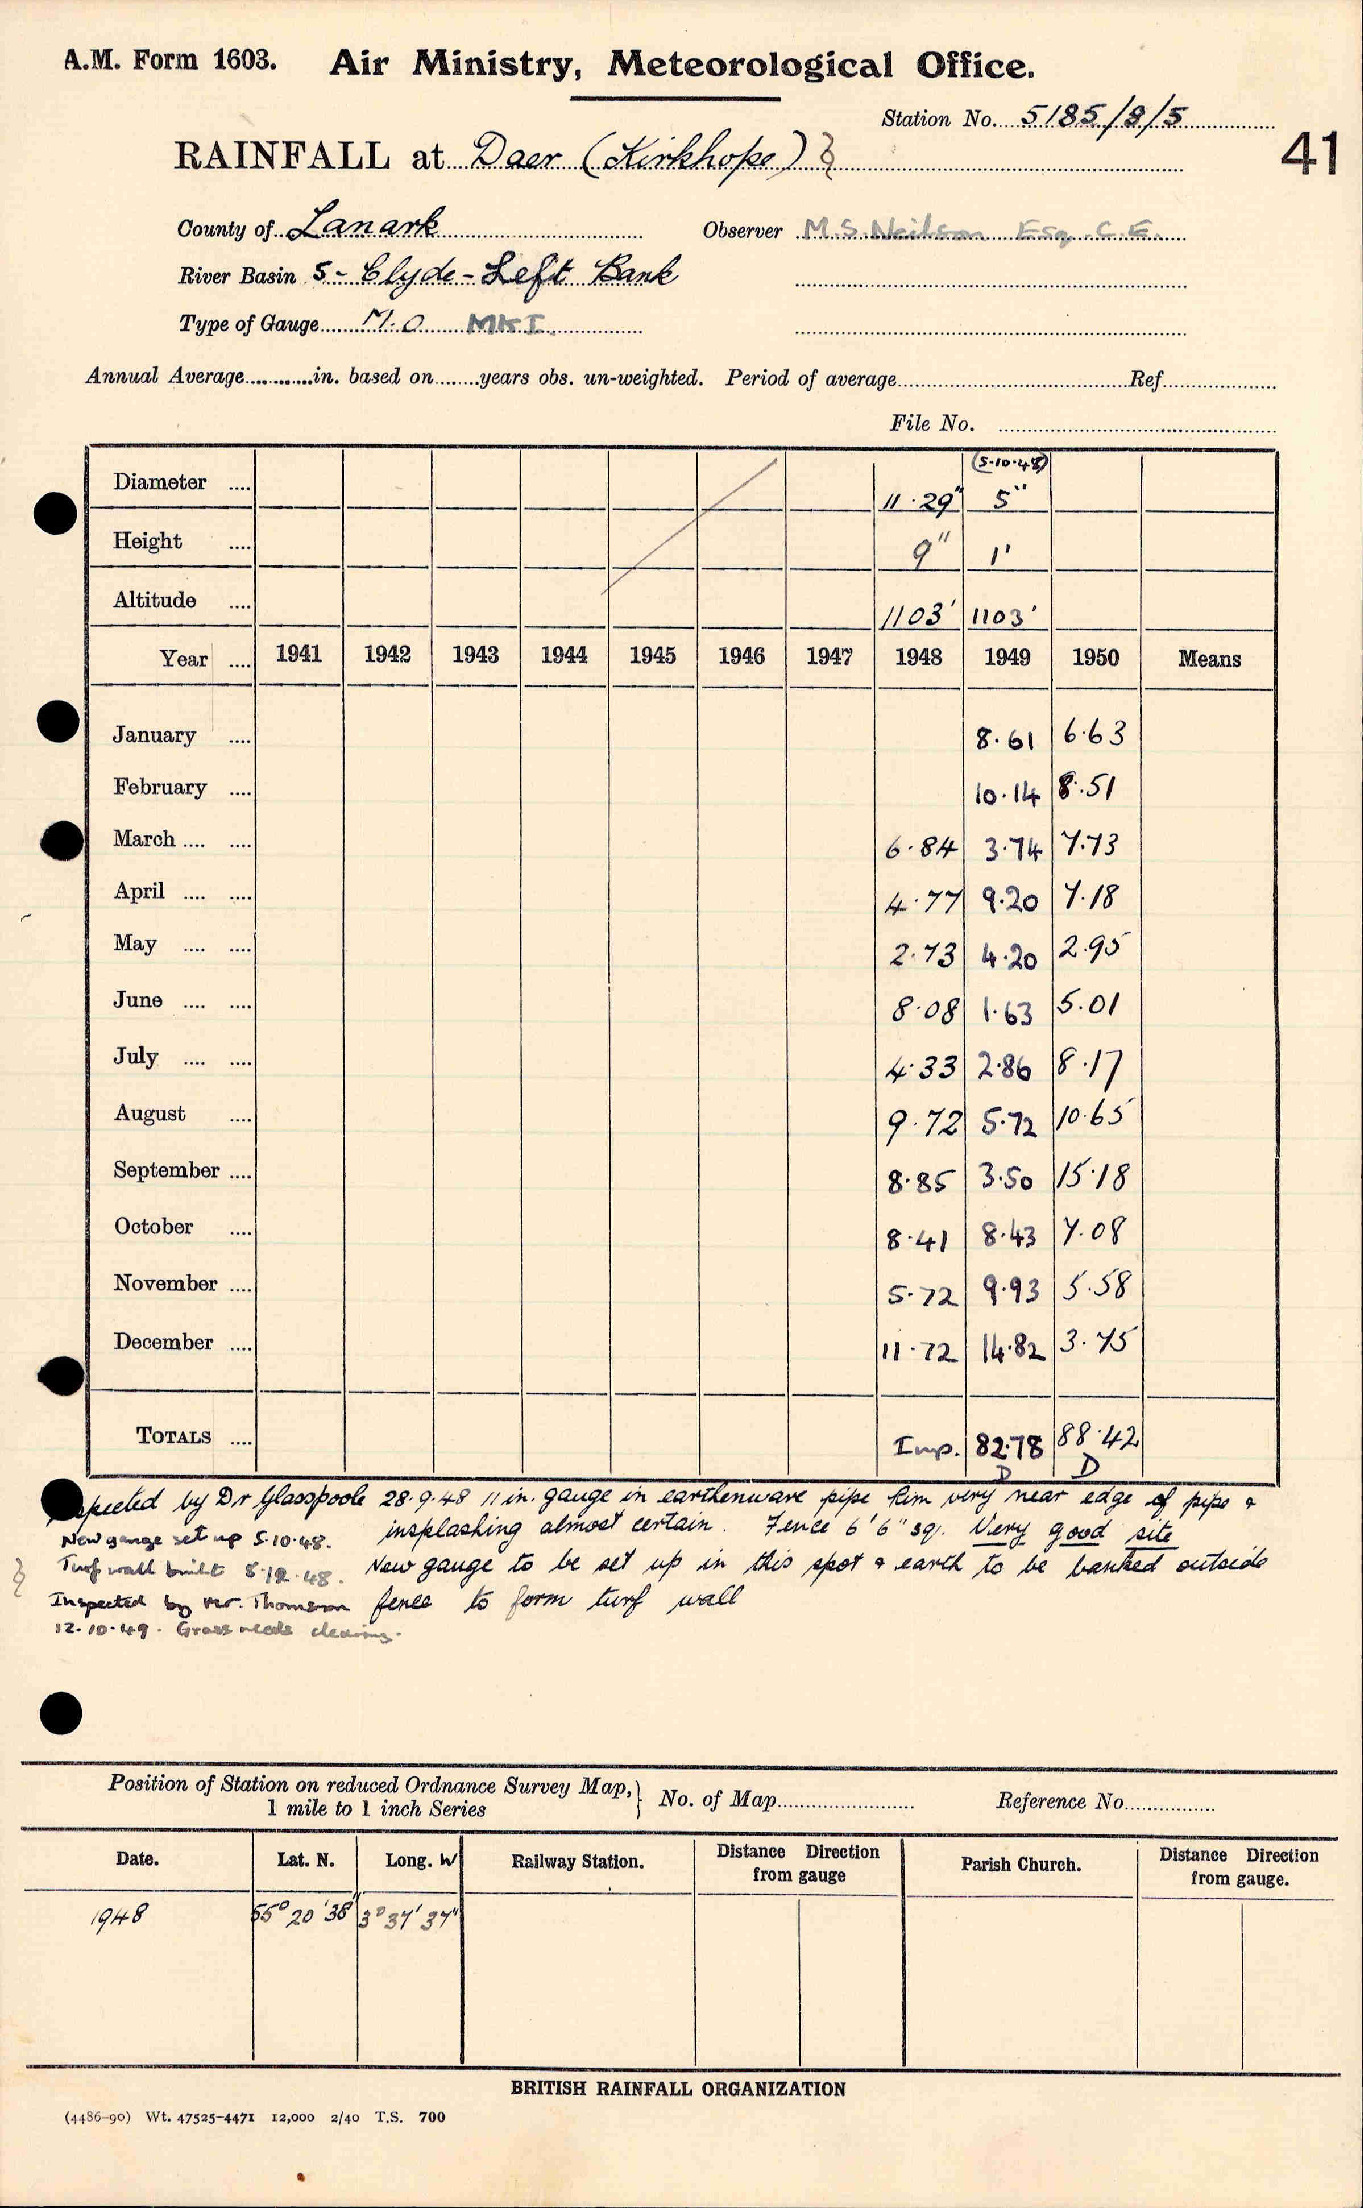 A.M. Form 1603. Air Ministry, Meteorological Office.
Station No. 5185/8/5
41
RAINFALL at Daer (Kirkhope) }
County of Lanark Observer M.S. Neilson Esq. C.E.
River Basin 5 - Clyde - Left Bank
Type of Gauge M.O MK I.
Annual Average............in. based on........years obs. un-weighted. Period of average............Ref............
File No. ............
(5.10.48)
Diameter .... 11.29" 5"
Height .... 9" 1'
Altitude .... 1103' 1103'
Year .... 1941 1942 1943 1944 1945 1946 1947 1948 1949 1950 Means
January .... 8.61 6.63
February .... 10.14 8.51
March .... .... 6.84 3.74 7.73
April .... .... 4.77 9.20 7.18
May .... .... 2.73 4.20 2.95
June .... .... 8.08 1.63 5.01
July .... .... 4.33 2.86 8.17
August .... 9.72 5.72 10.65
September .... 8.85 3.50 15.18
October .... 8.41 8.43 7.08
November .... 5.72 9.93 5.58
December .... 11.72 14.82 3.75
TOTALS .... Imp. 82.78 88.42
D D
Inspected by Dr Glasspoole 28.9.48 11 in. gauge in earthenware pipe Rim very near edge of pipe &
insplashing almost certain. Fence 6'6" sq. Very good site
New gauge to be set up in this spot & earth to be banked outside
fence to form turf wall
New gauge set up 5.10.48.
Turf wall built 8.12.48.
Inspected by Mr. Thomson
12.10.49. Grass needs clearing.
Position of Station on reduced Ordnance Survey Map, } No. of Map............ Reference No............
1 mile to 1 inch Series
Date. Lat. N. Long. W Railway Station. Distance Direction from gauge Parish Church. Distance Direction from gauge.
1948 55° 20' 38" 3° 37' 37"
BRITISH RAINFALL ORGANIZATION
(4486-90) Wt. 47525-4471 12,000 2/40 T.S. 700